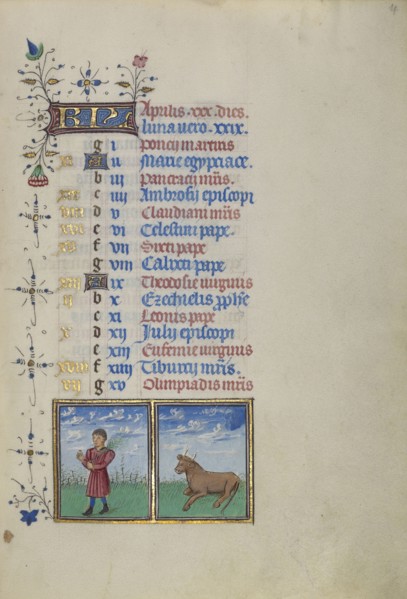 KL Aprilis .xxx. dies.
luna vero .xxix.
g i Poncij martiris
A ii Marie egypciace.
b iii Pancracij mris.
c iiii Ambrosij episcopi
d v Claudiani mris
e vi Celestini pape.
f vii Sixti pape
g viii Calixti pape
A ix Theodosie virginis
b x Ezechielis pphe
c xi Leonis pape
d xii Julij episcopi
e xiii Eufemie virginis
f xiiii Tiburcij mris.
g xv Olimpiadis mris